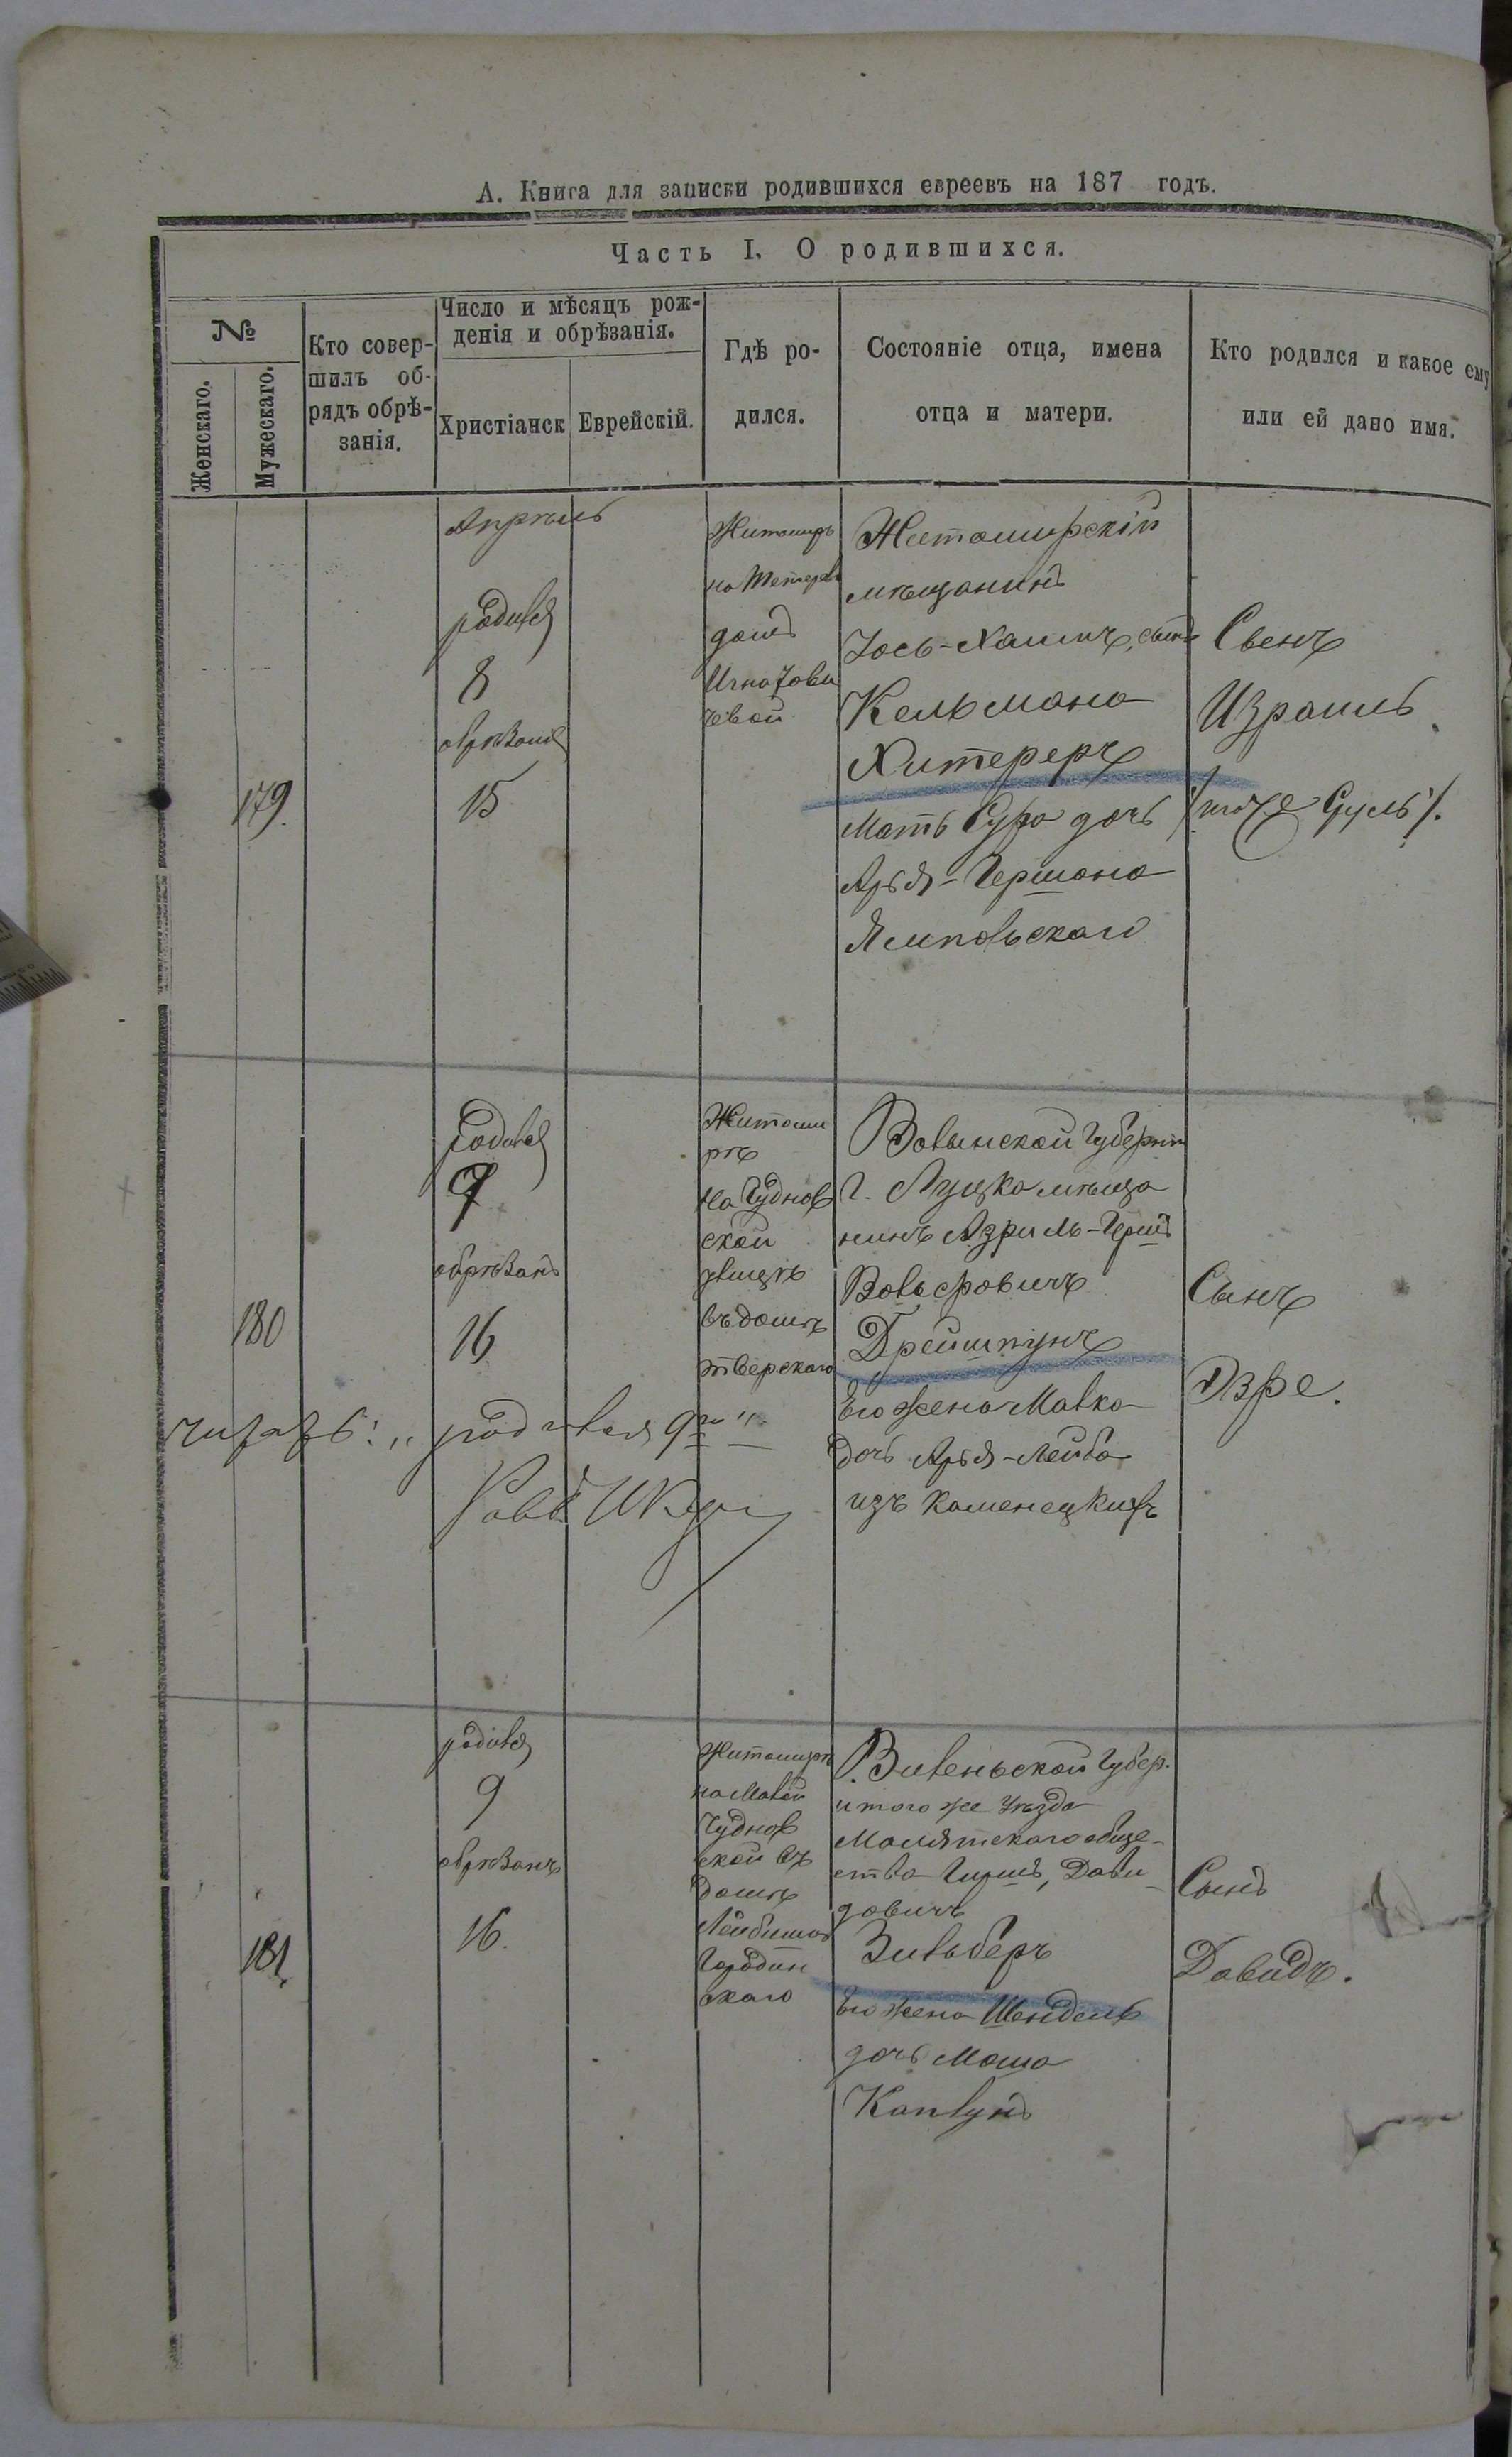 А. Книга для записки родившихся евреевъ на 187 годъ.
Часть I. О родившихся.
№
Женскаго.
Мужескаго.
Кто совер-
шилъ об-
рядъ обрѣ-
занія.
Число и мѣсяцъ рож-
денія и обрѣзанія.
Христіанск
Еврейскій.
Гдѣ ро-
дился.
Состояніе отца, имена
отца и матери.
Кто родился и какое ему
или ей дано имя.
179
Апрѣль
родился
8
обрѣзанъ
15
Житомиръ
на
домъ
Игнатови
чевой
Житомирскій
мѣщанинъ
Іось-Хаимъ, сынъ
Кельмана
Хитереръ
Мать Сура дочь
Арья-Гершона
Ямпольскаго
Сынъ
Израиль
/тоже Сруль/.
180
родился
9
обрѣзанъ
16
Житоми
рѣ
на Чуднов
ской
улицѣ
въ домѣ
Тверскаго
Волынской Губерніи
г. Луцка мѣща
нинъ Азриль-Гершъ
Вольфовичъ
Грейшпунъ
Его жена Малка
дочь Арья-Лейба
изъ Каменецкихъ
Сынъ
Эзре.
читать: „родился 9го"
181
родился
9
обрѣзанъ
16.
Житомирѣ
на Малой
Чуднов
ской въ
домѣ
Лейбиша
Городин
скаго
Виленьской Губер.
и того же Уѣзда
Малятскаго обще-
ства Гиршъ, Дави
довичъ
Зильберъ
Его жена Шендель
дочь Моша
Каплунъ
Сынъ
Давидъ.